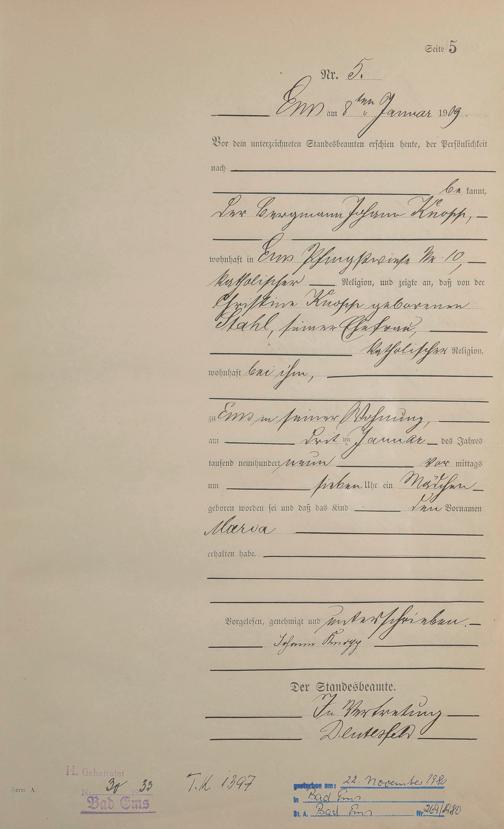 Seite 5
Nr. 5.
Ems am 8ten Januar 1909.
Vor dem unterzeichneten Standesbeamten erschien heute, der Persönlichkeit
nach
be kannt,
der Bergmann Johann Knopp,
wohnhaft in Ems Pfingstwiese Nr 10,
katholischer Religion, und zeigte an, daß von der
Christine Knopp geborenen
Stahl, seiner Ehefrau,
katholischer Religion,
wohnhaft bei ihm,
zu Ems in seiner Wohnung,
am drei ten Januar des Jahres
tausend neunhundert neun vor mittags
um sieben Uhr ein Mädchen
geboren worden sei und daß das Kind den Vornamen
Maria
erhalten habe.
Vorgelesen, genehmigt und unterschrieben.
Johann Knopp
Der Standesbeamte.
In Vertretung
Form A.
H. Geheiratet
Nr. 39 33
Bad Ems
T.K 1397
gestorben am: 22. November 1980
in Bad Ems
St. A. Bad Ems Nr. 269/1980